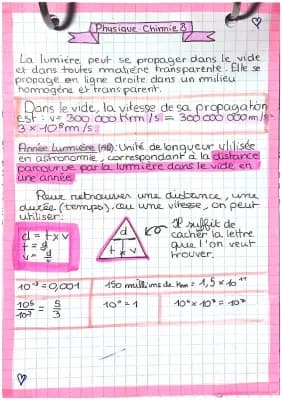 Physique-Chimie 8
La lumière peut se propager dans le vide
et dans toutes matière transparente. Elle se
propage en ligne droite dans un milieu
homogène et transparent.
Dans le vide, la vitesse de sa propagation
est : v= 300 000 Km/s = 300 000 000 m/s =
3 x 10⁸ m/s
Année Lumière (al): Unité de longueur utilisée
en astronomie, correspondant à la distance
parcourue par la lumière dans le vide en
une année.
Pour retrouver une distance, une
durée (temps), ou une vitesse, on peut
utiliser:
d = t x v
t = d/v
v = d/t
d
t x v
Il suffit de
cacher la lettre
que l'on veut
trouver.
10⁻³ = 0,001
150 millions de Km = 1,5 x 10¹¹
10⁰ = 1